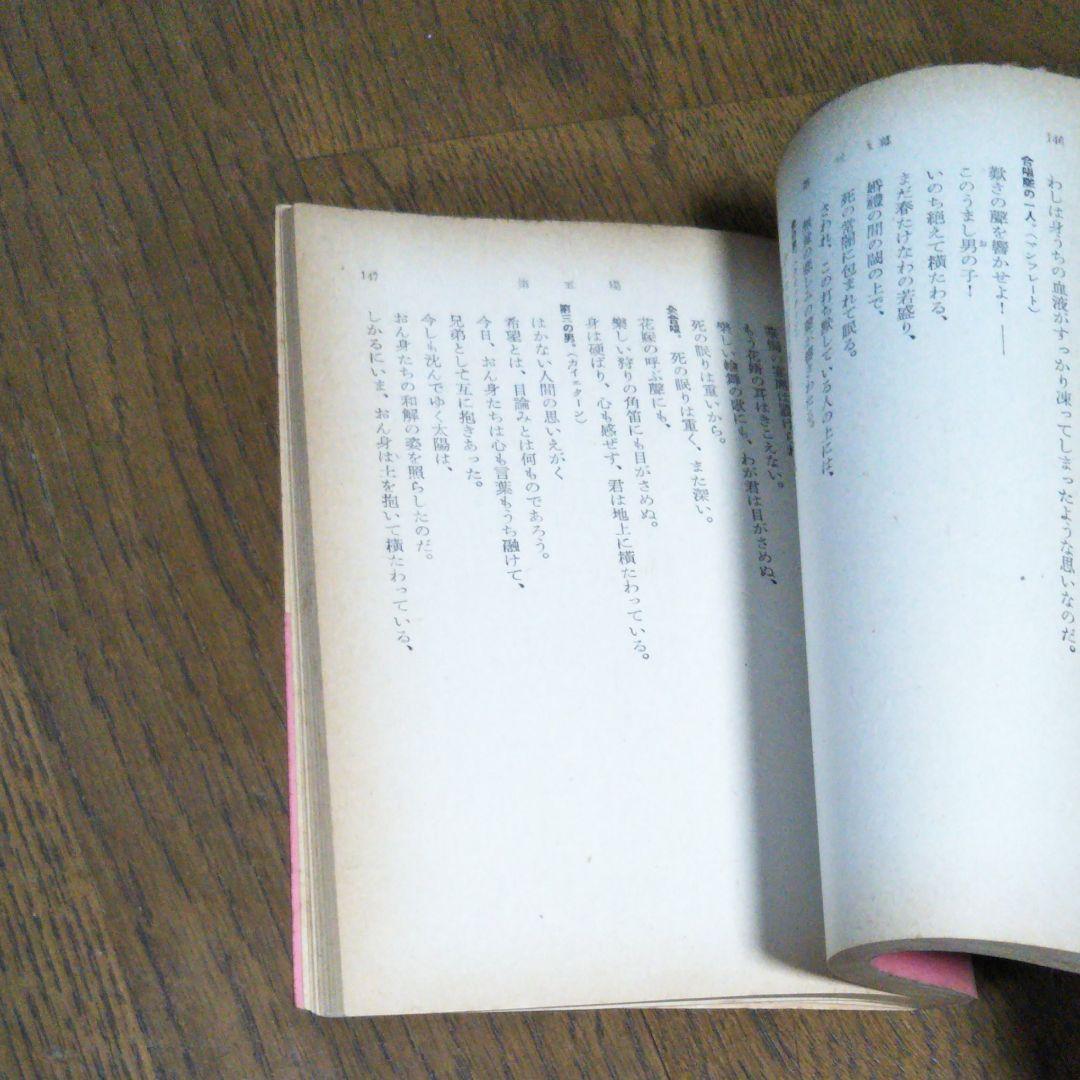 146
わしは身うちの血液がすっかり凍ってしまったような思いなのだ。
合唱隊の一人、(マンフレート)
歎きの聲を響かせよ！――
このうまし男の子！
お
いのち絶えて横たわる、
まだ春たけなわの若盛り、
婚禮の間の閾の上で、
死の常闇に包まれて眠る。
されれ、この打ち默している人の上には、
147
第五場
もう花婿の耳はきこえない。
樂しい輪舞の歌にも、わが君は目がさめぬ、
死の眠りは重いから。
全合唱、死の眠りは重く、また深い。
花嫁の呼ぶ聲にも、
樂しい狩りの角笛にも目がさめぬ。
身は硬ばり、心も感ぜず、君は地上に横たわっている。
第三の男、(カイェターン)
はかない人間の思いえがく
希望とは、目論みとは何ものであろう。
今日、おん身たちは心も言葉もうち融けて、
兄弟として互に抱きあった。
今しも沈んでゆく太陽は、
おん身たちの和解の姿を照らしたのだ。
しかるにいま、おん身は土を抱いて横たわっている、